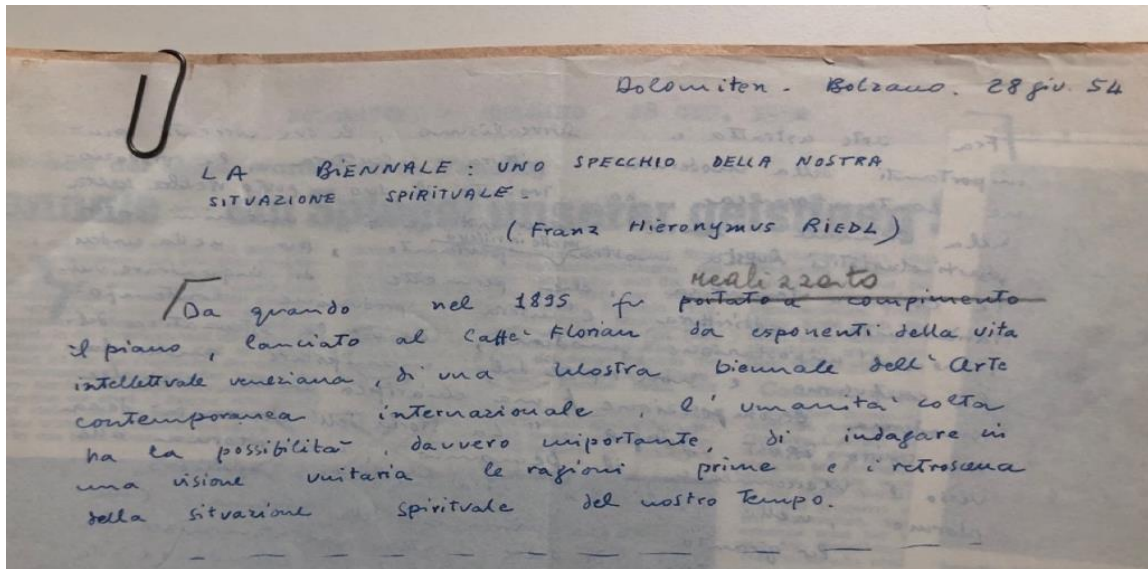 Dolomiten - Bolzano. 28 giu. 54
LA BIENNALE: UNO SPECCHIO DELLA NOSTRA
SITUAZIONE SPIRITUALE.
(Franz Hieronymus RIEDL)
realizzato
Da quando nel 1895 fu portato a compimento
il piano, lanciato al Caffè Florian da esponenti della vita
intellettuale veneziana, di una Mostra biennale dell'Arte
contemporanea internazionale, l'umanità colta
ha la possibilità, davvero importante, di indagare in
una visione unitaria le ragioni prime e i retroscena
della situazione spirituale del nostro tempo.